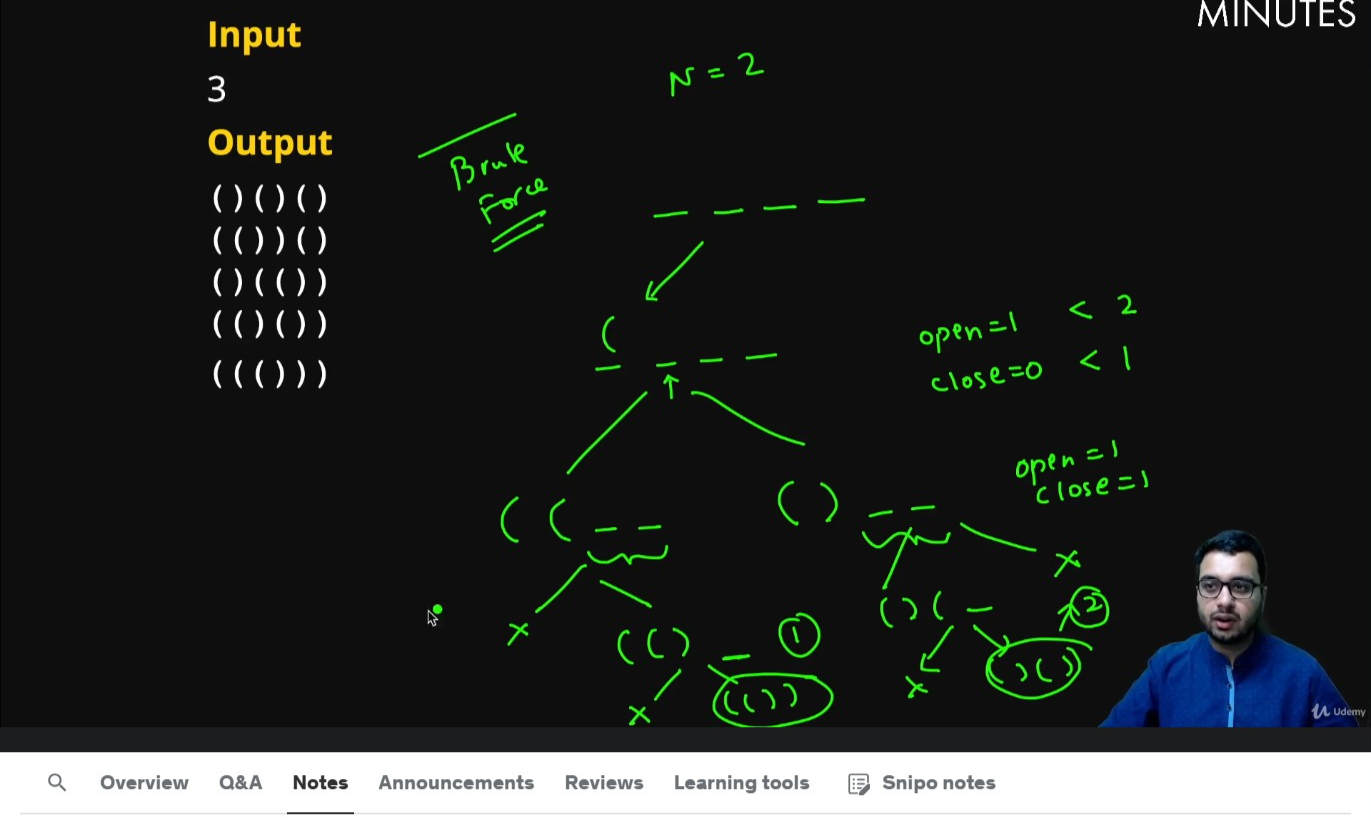 MINUTES
Input
3
Output
()()()
(())()
()(())
(()())
((()))
N = 2
Brute
Force
_ _ _ _
(
_ _ _ _
open=1 < 2
close=0 < 1
open=1
close=1
( ( _ _
( ) _ _
x
x
( ( ) _ 1
( ) ( _ 2
x
( ( ) )
x
( ) ( )
Udemy
Overview Q&A Notes Announcements Reviews Learning tools Snipo notes